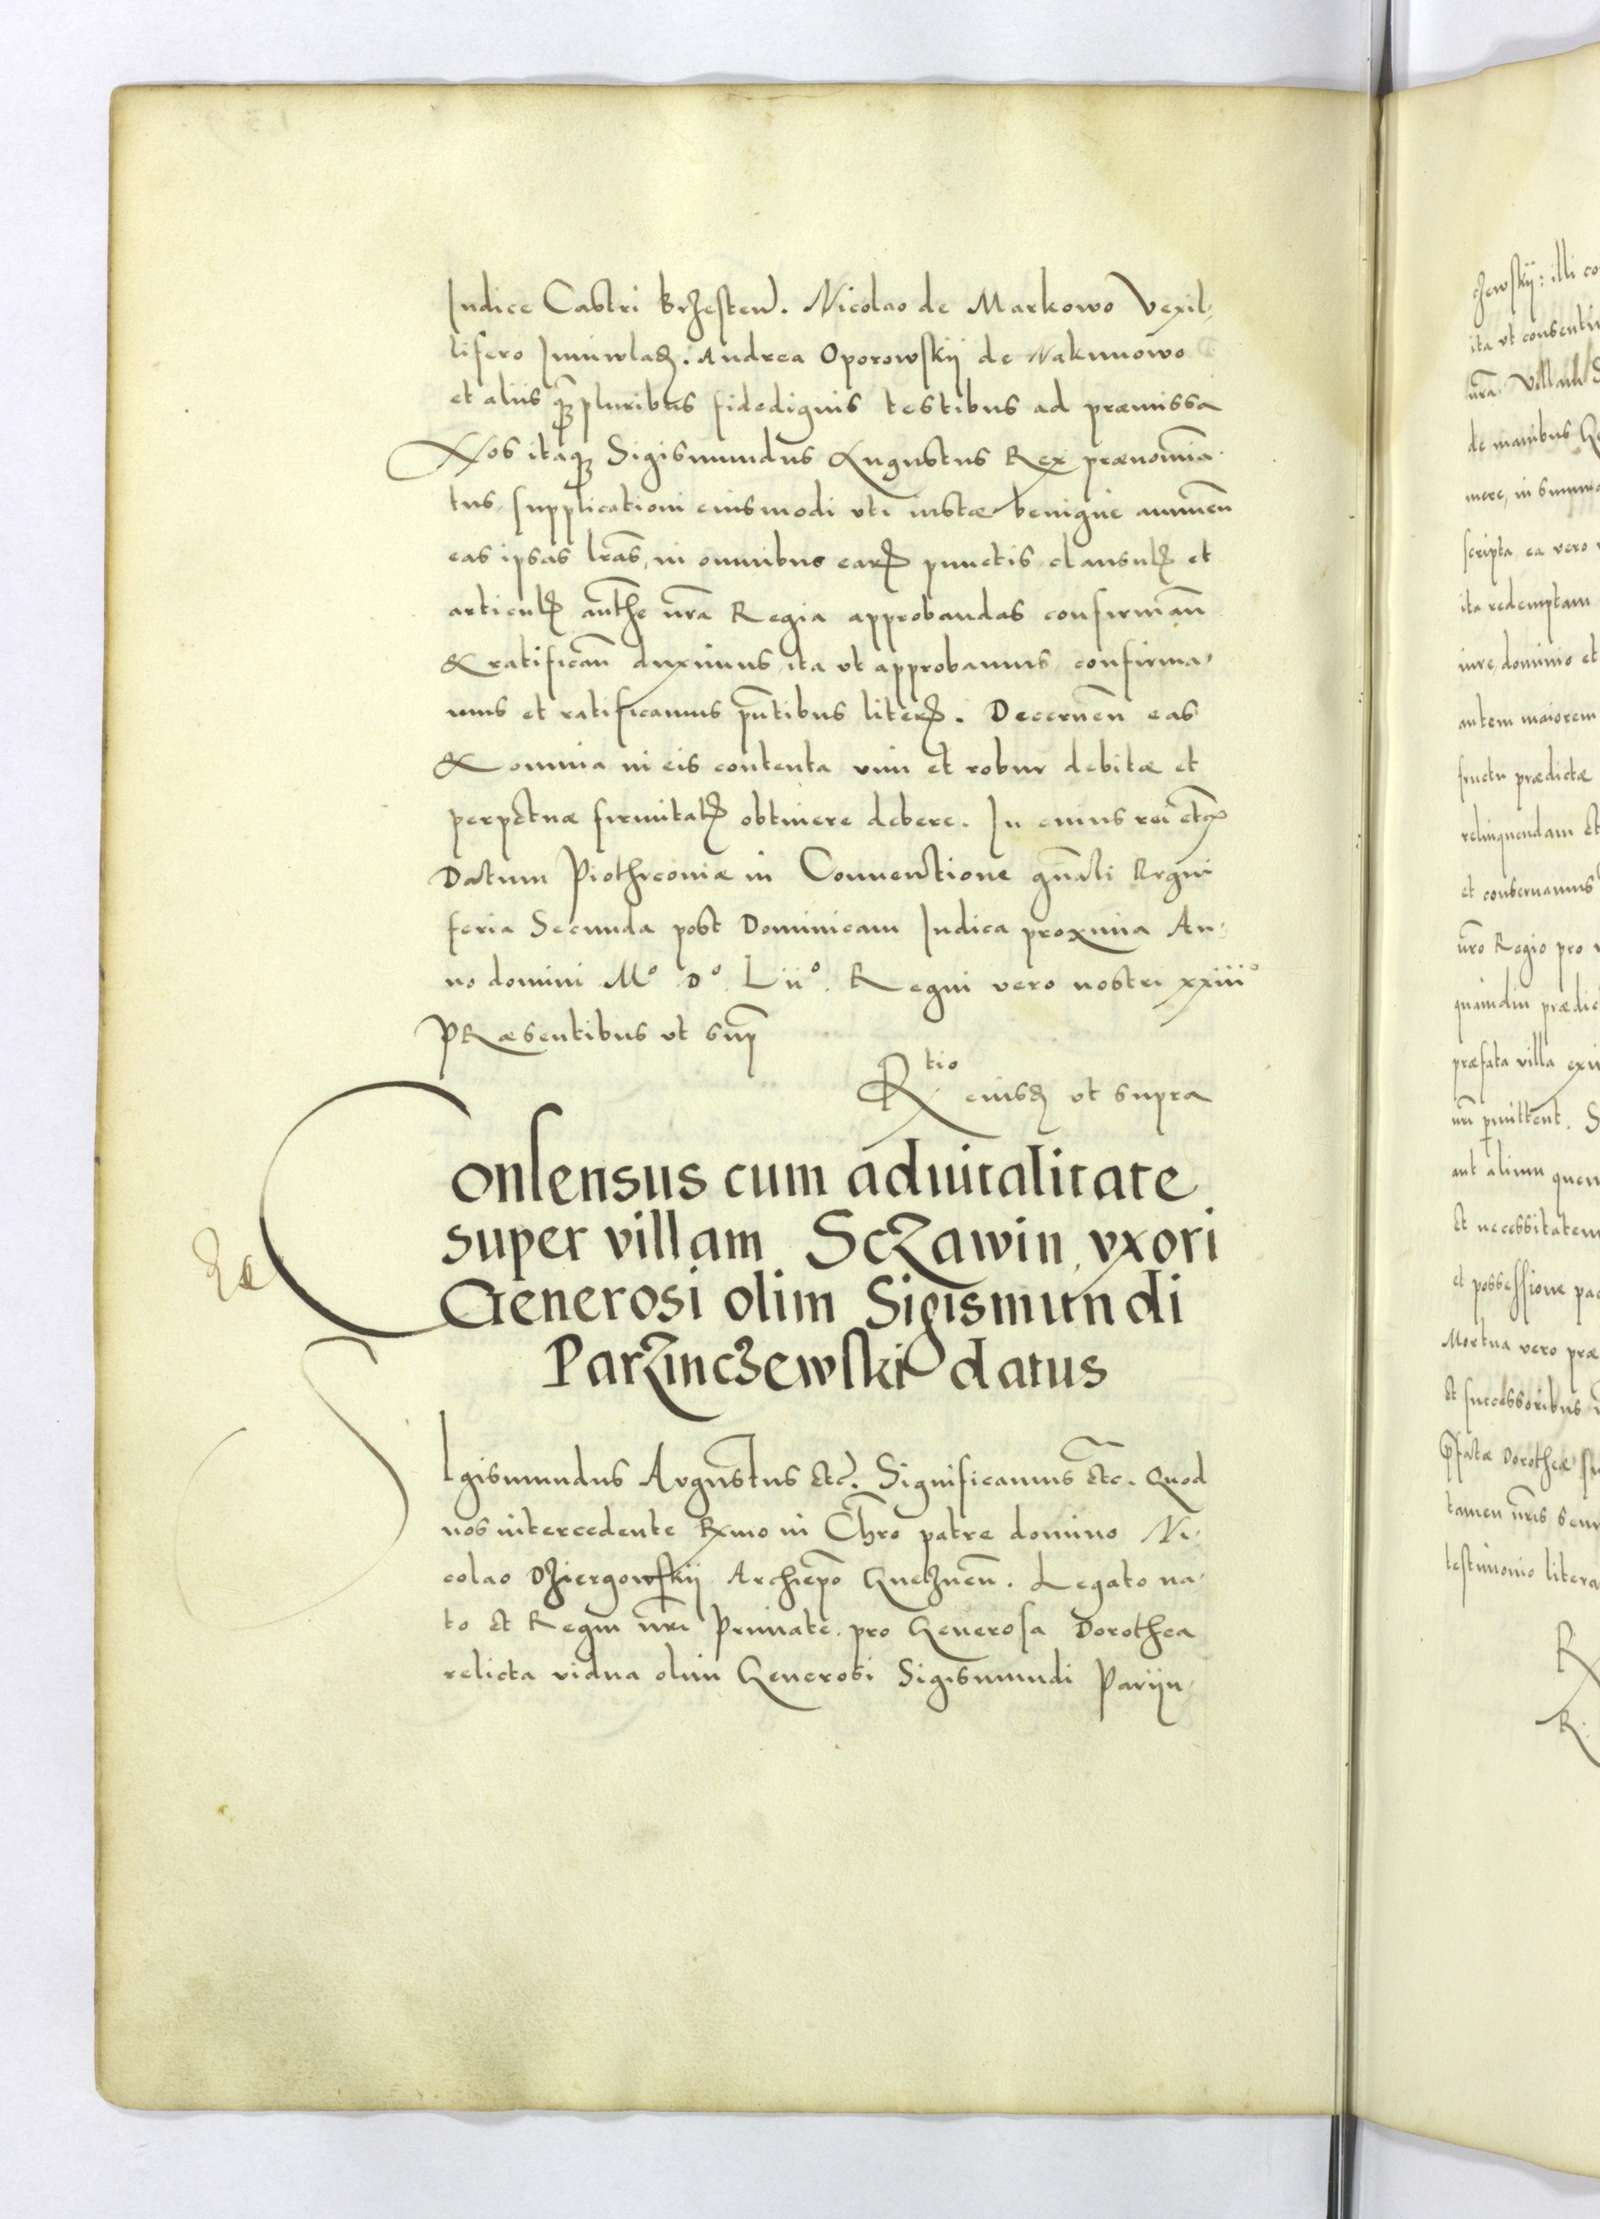 Iudice Castri Brzesten̄. Nicolao de Markowo Vexil-
lifero Iuniwladꝫ. Andrea Oporowskij de Nakunowo
et aliis qꝫ pluribus fidedignis testibus ad præmissa
Nos itaqꝫ Sigismundus Augustus Rex prænomina-
tus, supplicationi eiusmodi vti iustæ benigne annuen̄
eas ipsas lr̄as, in omnibus earꝫ punctis clausulꝫ et
articulꝫ aut̄he nr̄a Regia approbandas confirman̄
& ratifican̄ duximus, ita vt approbamus, confirma-
mus et ratificamus pn̄tibus literꝫ. Decernen̄ eas
& omnia in eis contenta vim et robur debitæ et
perpetuæ firmitatꝫ obtinere debere. In cuius rei etc̄
Datum Piothrcoviæ in Conventione gn̄ali Regni
feria Secunda post Dominicam Iudica proxima An-
no domini Mº Dº Liiº. Regni vero nostri xxiiiº
PRæsentibus vt sup̄
Rtio eiusdꝫ vt supra
Consensus cum aduitalitate
super villam Sczawin, vxori
Generosi olim Sigismundi
Parzinczewski datus
SIgismundus Avgustus etc̄. Significamus etc̄. Quod
nos intercedente Rxmo in Chr̄o patre domino Ni-
colao Dziergowskij Archiep̄o Gneznen̄. Legato na-
to et Regni nr̄i Primate, pro Generosa Dorothea
relicta vidua olim Generosi Sigismundi Parijn-
czewskij: illi
ita vt
nr̄a
de manibus
mere, in summa
scripta, ea vero
ita redemptam
iure, dominio et
autem maiorem
fructu prædictæ
relinquendam et
et conservamus
nr̄o Regio pro
quamdiu
præfata villa
nr̄i p̱mittent. S
aut alium
Et necessitatem
et possessione
Mortua vero
Et successoribus
Dorotheæ
tamen nr̄is
testimonio litera
R
R.